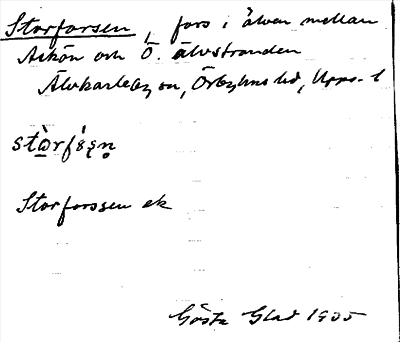 Storforsen, fors i älven mellan
Askön och Ö. älvstranden
Älvkarleby sn, Örbyhus hd, Upps. l
Storforssen ek
Gösta Glad 1905